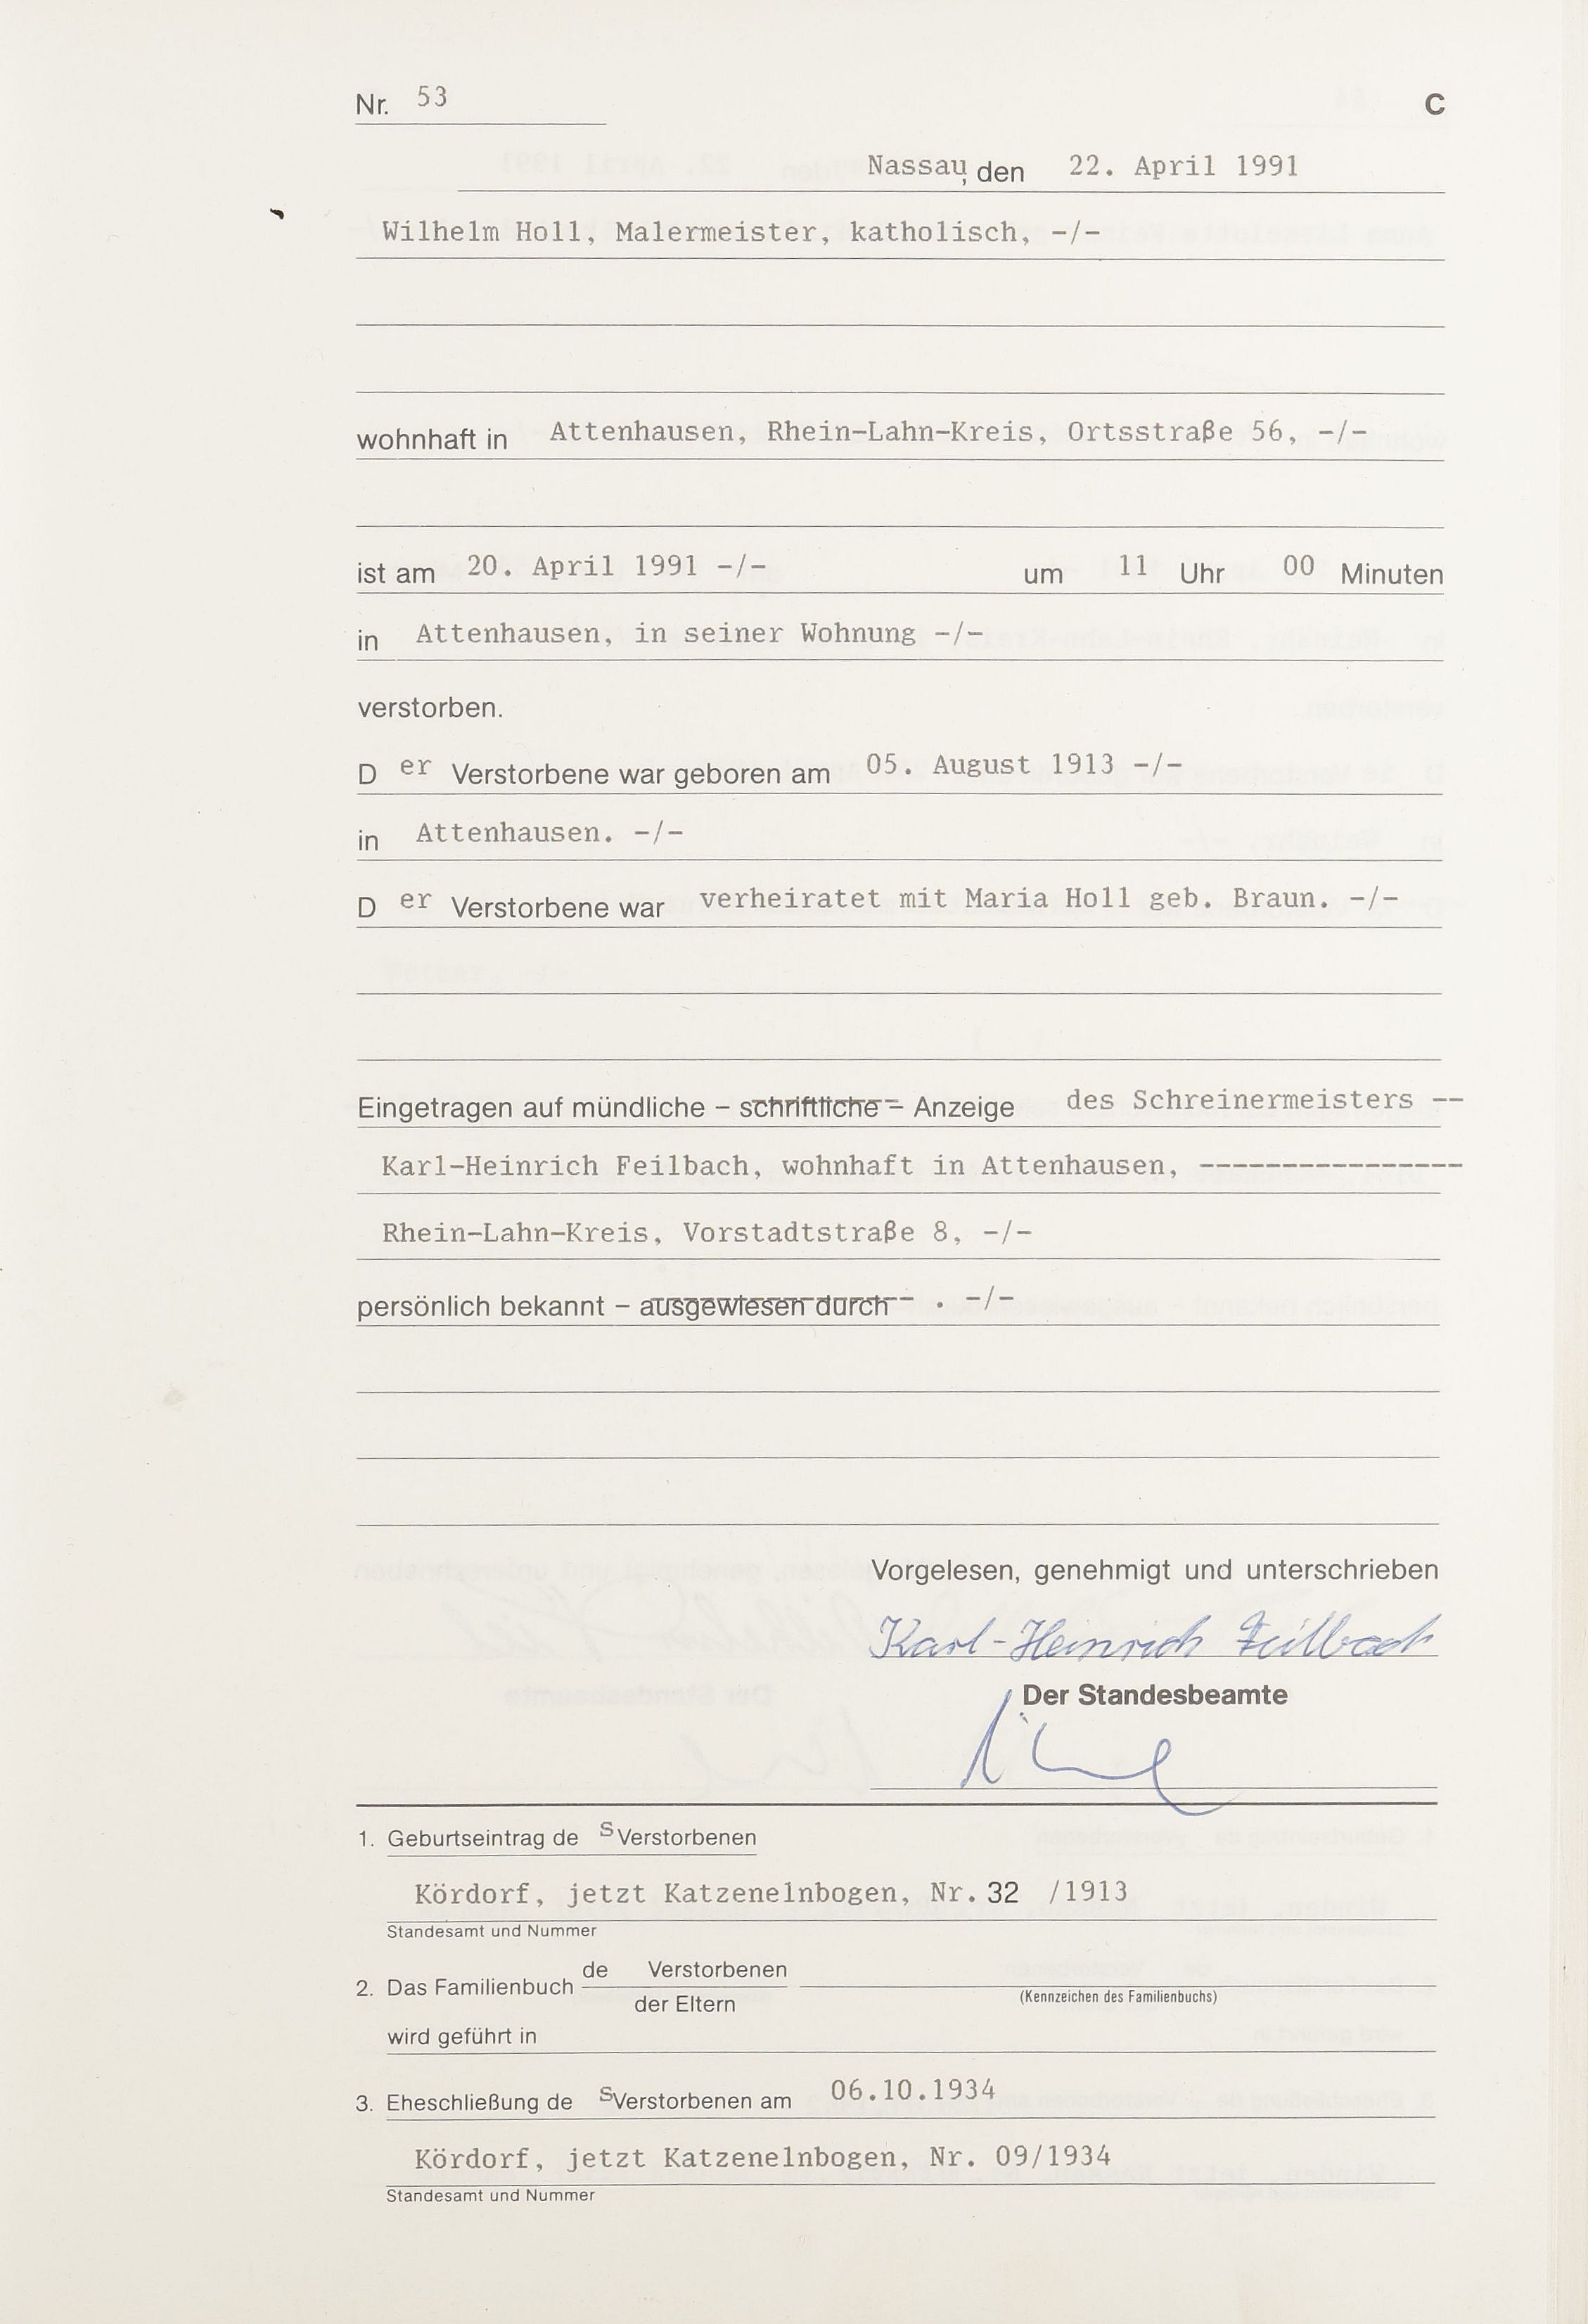 Nr. 53 C
Nassau, den 22. April 1991
Wilhelm Holl, Malermeister, katholisch, -/-
wohnhaft in Attenhausen, Rhein-Lahn-Kreis, Ortsstraße 56, -/-
ist am 20. April 1991 -/- um 11 Uhr 00 Minuten
in Attenhausen, in seiner Wohnung -/-
verstorben.
D er Verstorbene war geboren am 05. August 1913 -/-
in Attenhausen. -/-
D er Verstorbene war verheiratet mit Maria Holl geb. Braun. -/-
Eingetragen auf mündliche – schriftliche – Anzeige des Schreinermeisters --
Karl-Heinrich Feilbach, wohnhaft in Attenhausen, ----------------
Rhein-Lahn-Kreis, Vorstadtstraße 8, -/-
persönlich bekannt – ausgewiesen durch -- . -/-
Vorgelesen, genehmigt und unterschrieben
Karl-Heinrich Feilbach
Der Standesbeamte
1. Geburtseintrag de s Verstorbenen
Kördorf, jetzt Katzenelnbogen, Nr. 32 /1913
Standesamt und Nummer
2. Das Familienbuch de Verstorbenen
der Eltern
(Kennzeichen des Familienbuchs)
wird geführt in
3. Eheschließung de s Verstorbenen am 06.10.1934
Kördorf, jetzt Katzenelnbogen, Nr. 09/1934
Standesamt und Nummer